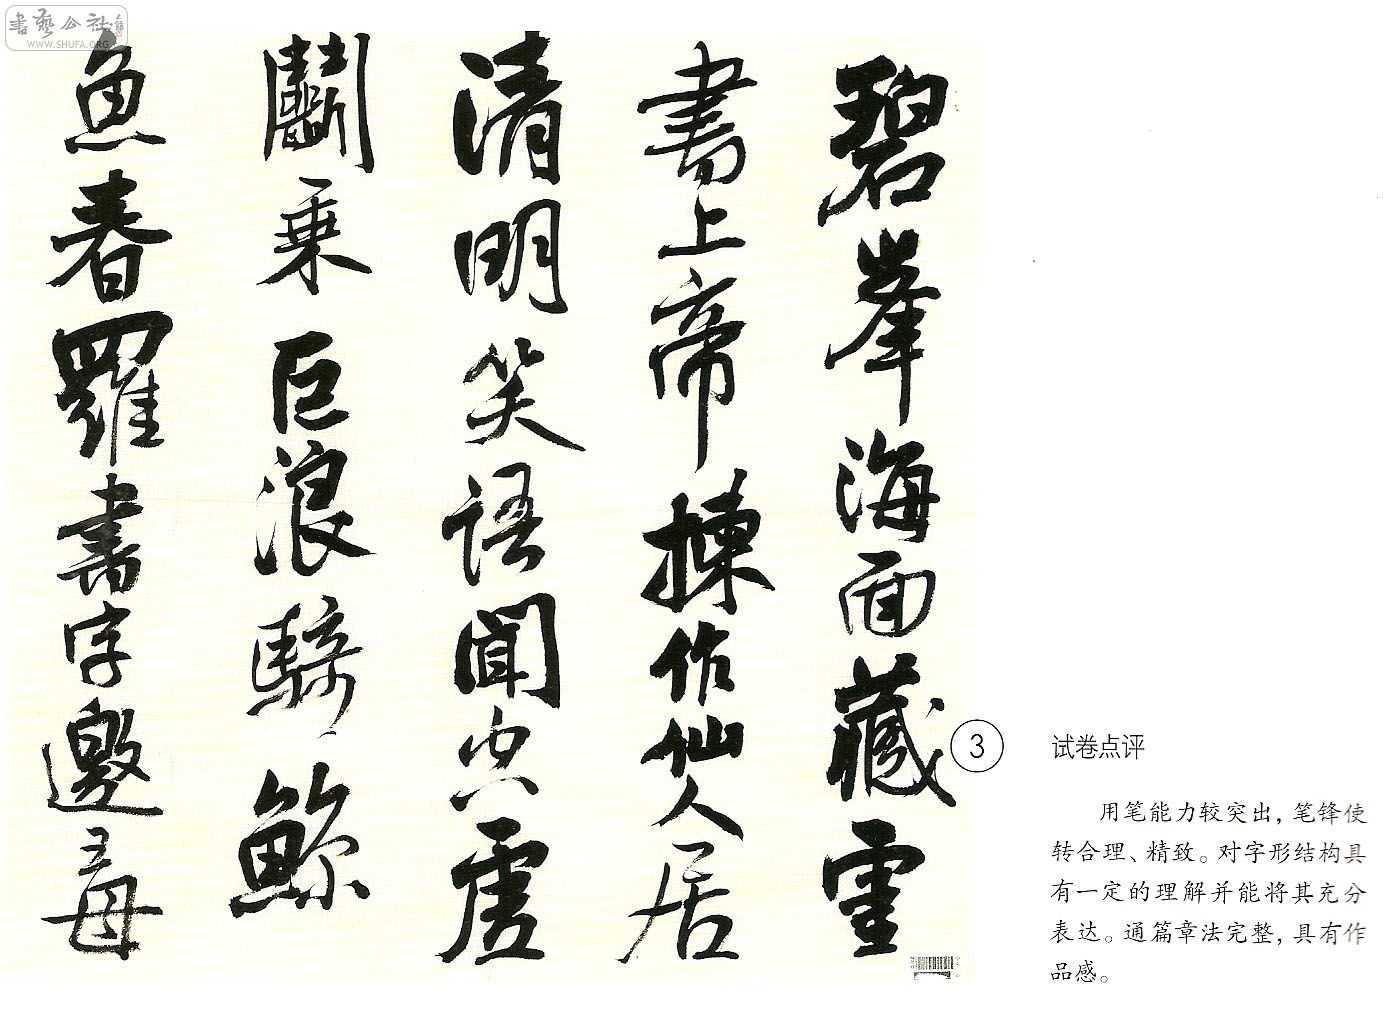 書藝公社
WWW.SHUFA.ORG
碧峯海面藏靈
書上帝揀作仙人居
清明笑語聞空虛
鬭乘巨浪騎鯨
魚春羅書字邀王母
3
试卷点评
用笔能力较突出，笔锋使
转合理、精致。对字形结构具
有一定的理解并能将其充分
表达。通篇章法完整，具有作
品感。